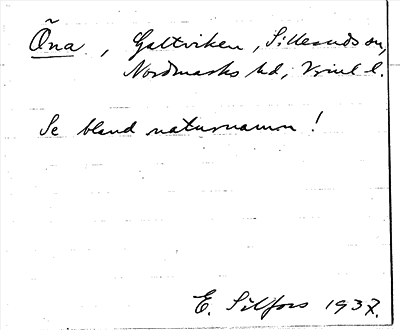 Õna, Galtviken, Silleruds sn,
Nordmarks hd, Vrml l.
Se bland naturnamn!
E. Silfors 1937.